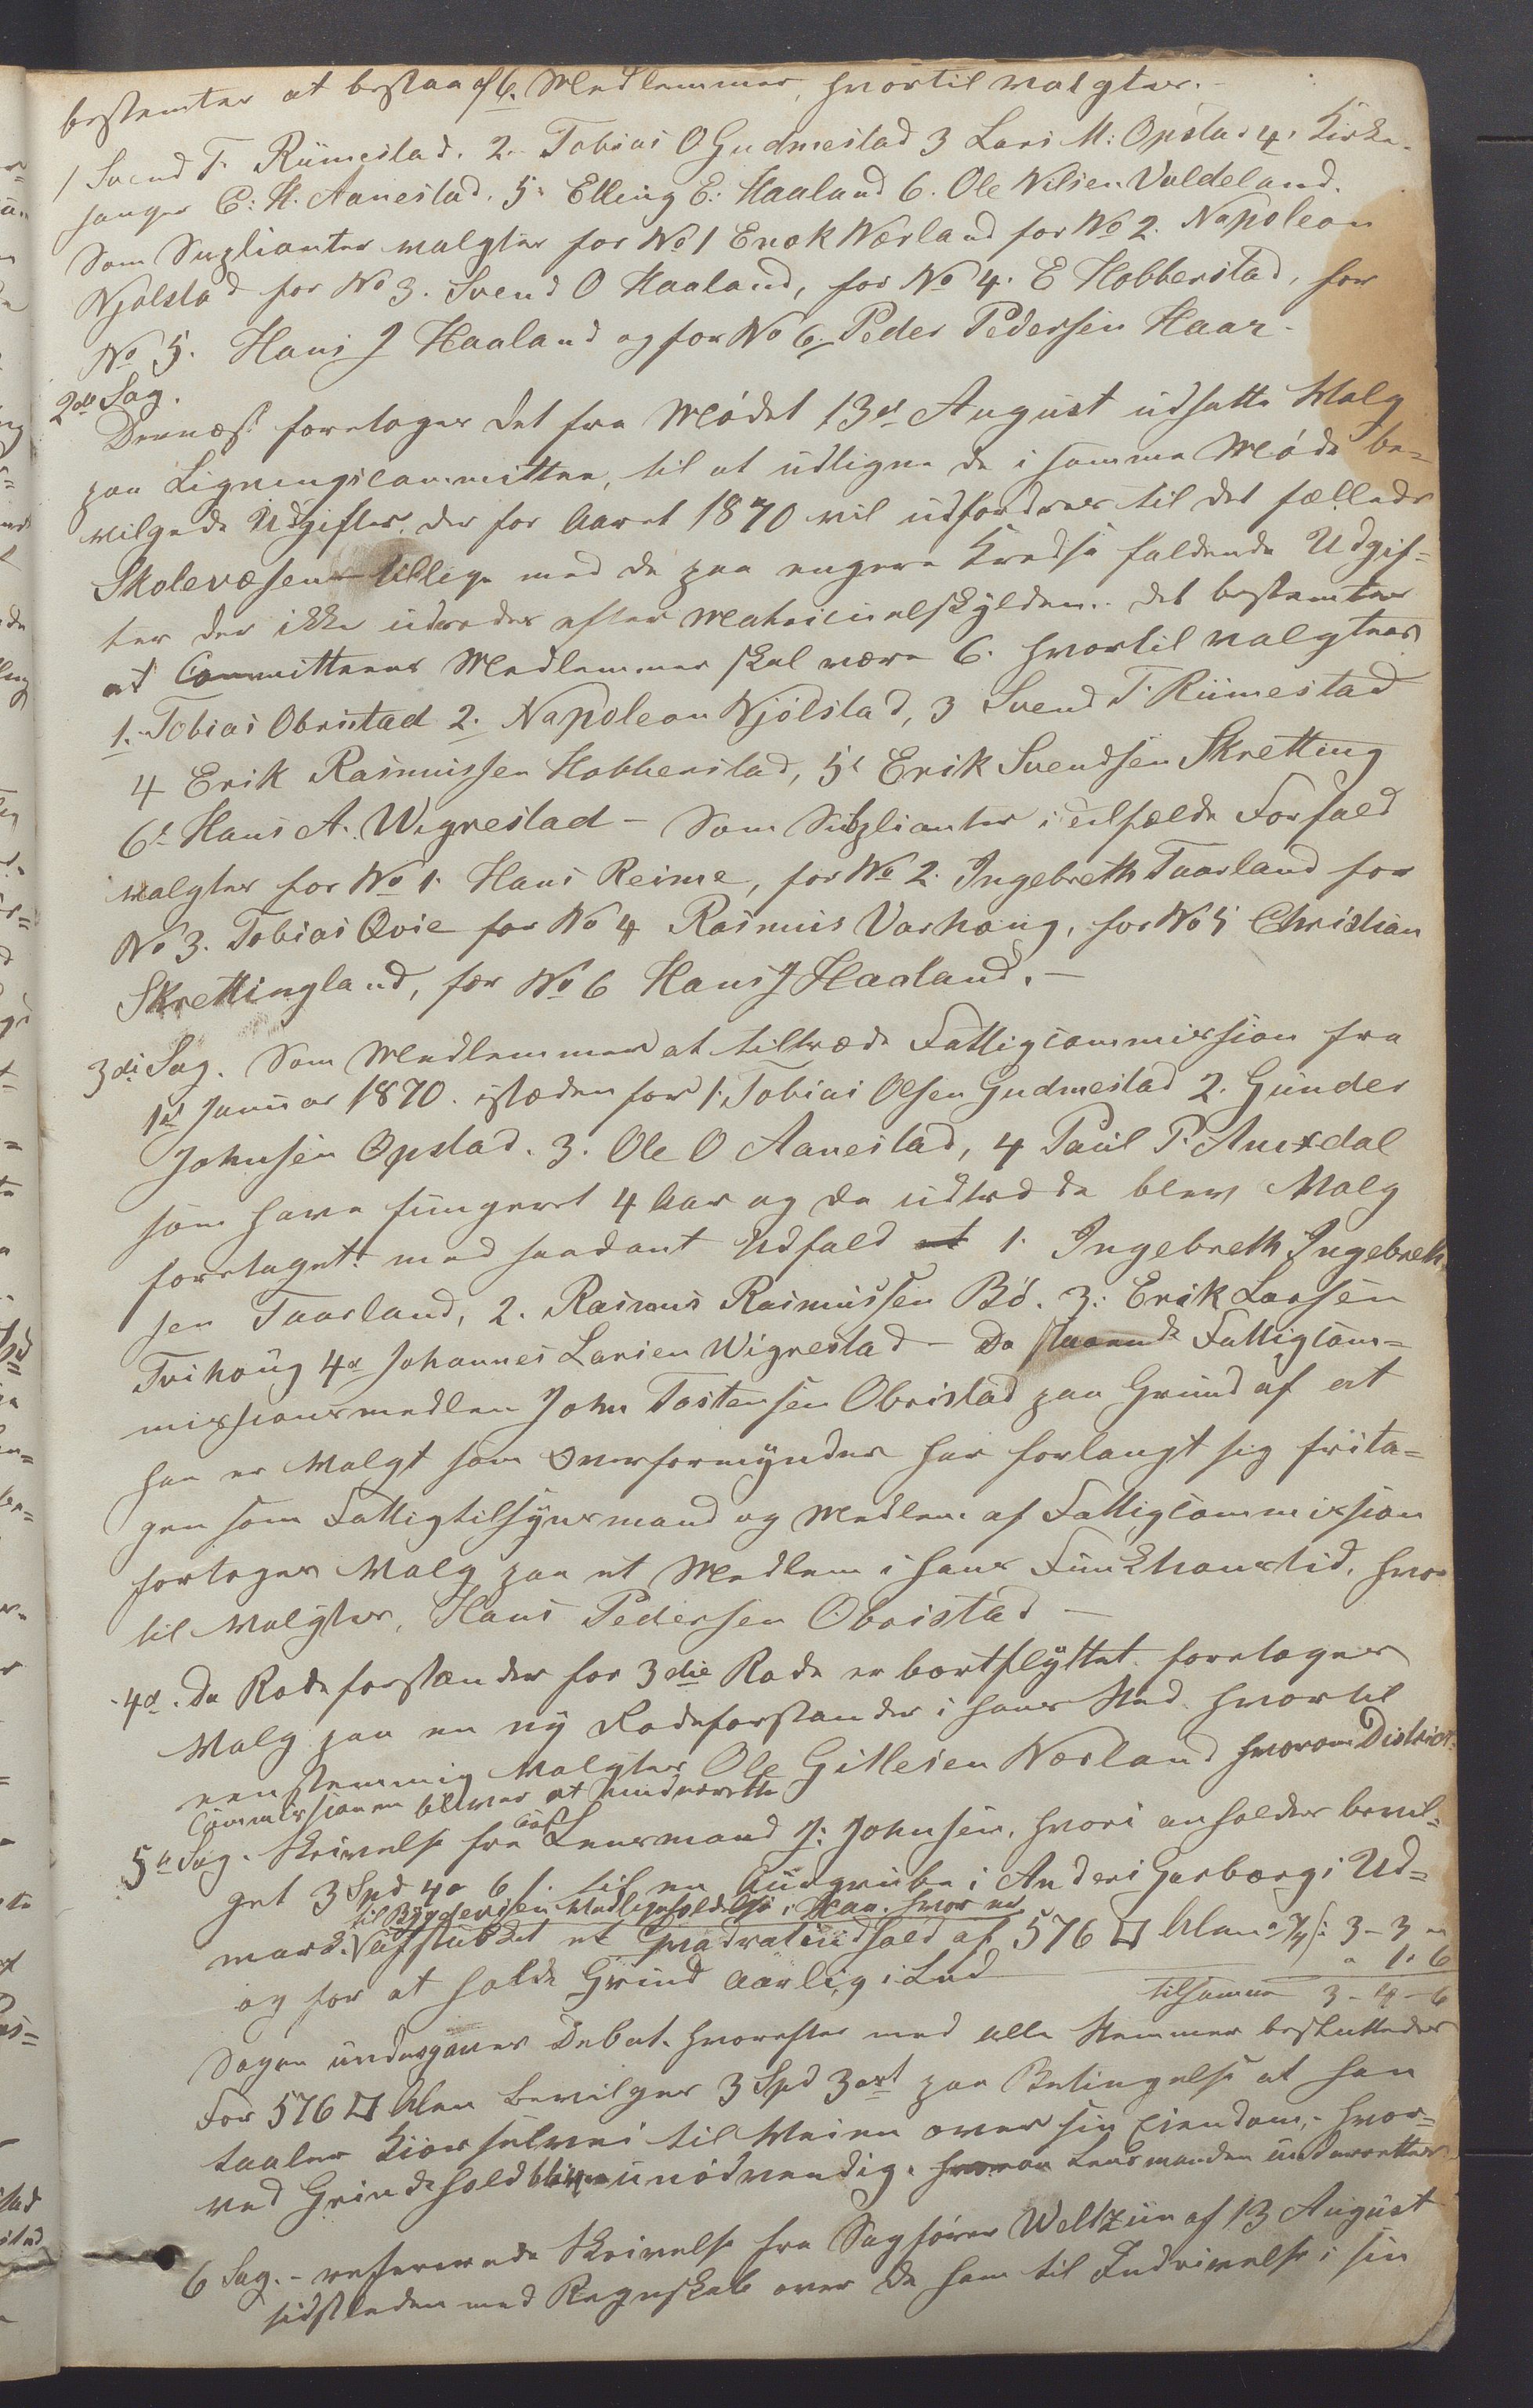 bestemtes at bestaa af 6. Medlemmer, hvortil valgtes.
1 Svend T. Riimestad. 2. Tobias O Gudmestad 3 Lars M: Opstad 4. Kirke-
sanger C: H. Aanestad. 5: Elling E: Haaland 6. Ole Nilsen Valdeland.
Som Suplianter valgtes for No 1 Enok Nærland for No 2. Napoleon
Njølstad for No 3. Svend O Haaland, for No 4. E Hobberstad, for
No 5. Hans J Haaland og for No 6. Peder Pedersen Haar.
2den Sag.
Dernæst foretoges det fra Mødet 13de August udsatte Valg
paa Ligningscommitteen, til at udligne de i samme Møde be=
vilgede Udgifter der for Aaret 1870 vil udfordres til det fælleds
Skolevæsen tillige med de paa engere Kredse faldende Udgif=
ter der ikke udredes efter Matriculskylden. det bestemtes
at Committeens Medlemmer skal være 6. hvortil valgtes
1. Tobias Obrestad 2. Napoleon Njølstad, 3 Svend T. Riimestad
4 Erik Rasmussen Hobberstad, 5: Erik Svendsen Skretting
6: Hans A. Wigrestad – Som Suplianter i tilfælde Forfald
valgtes for No 1. Hans Reime, for No 2. Ingebreth Taarland for
No 3. Tobias Qvie for No 4 Rasmus Varhaug, for No 5 Christian
Skrettingland, for No 6 Hans J Haaland. –
3die Sag. Som Medlemmer at tiltræde Fattigcommission fra
1st Januar 1870. istæden for 1. Tobias Olsen Gudmestad 2. Gunder
Johnsen Opstad. 3. Ole O Aanestad, 4 Paul P. Auesdal
som have fungeret 4 Aar og da udtrædde blev Valg
foretaget med saadant Udfald at 1. Ingebreth Ingebreth
sen Taarland, 2. Rasmus Rasmussen Bø. 3: Erik Larsen
Tvihaug 4de Johannes Larsen Wigrestad – Da Fattigcom=
missionsmedlem John Tostensen Obrestad paa Grund af at
han er Valgt som Overformynder har forlangt sig frita=
gen som Fattigtilsynsmand og Medlem af Fattigcommission
fortoges Valg paa et Medlem i hans Funktionstid, hvor
til Valgtes, Hans Pedersen Obrestad –
4de. Da Rodeforstander for 3die Rode er bortflyttet foretoges
Valg paa en ny Rodeforstander i hans Sted hvortil
eenstemmig Valgtes Ole Gitlesen Nærland hvorom District
Commissionen bliver at underrette
5te Sag. Skrivelse fra Lensmand J: Johnsen, hvori anholdes bevil=
get 3 Spd 4 6 . til en Auurgrube i Anders Garborgs Ud=
mark til Bygdeveien Vedligeholdelse i Haa. hvor er
afstukket et Quadratindhold af 576 □ Alen : 3 – 3
og for at holde Grind aarlig i Led " 1. 6
tilsammen 3 – 4 – 6
Sagen undergaves Debat. hvorefter med alle Stemmer besluttedes
For 576 □ Alen Bevilges 3 Spd 3 ort paa Betingelse at han
taaler Kiørselvei til Veien over sin Eiendom, hvor=
ved Grindhold bliver unødvendig. hvorom Lensmanden underrettes
6 Sag. – refereredes Skrivelse fra Sagfører Weltzin af 13 August
sidstleden med Regnskab over de ham til Inddrivelse i sin